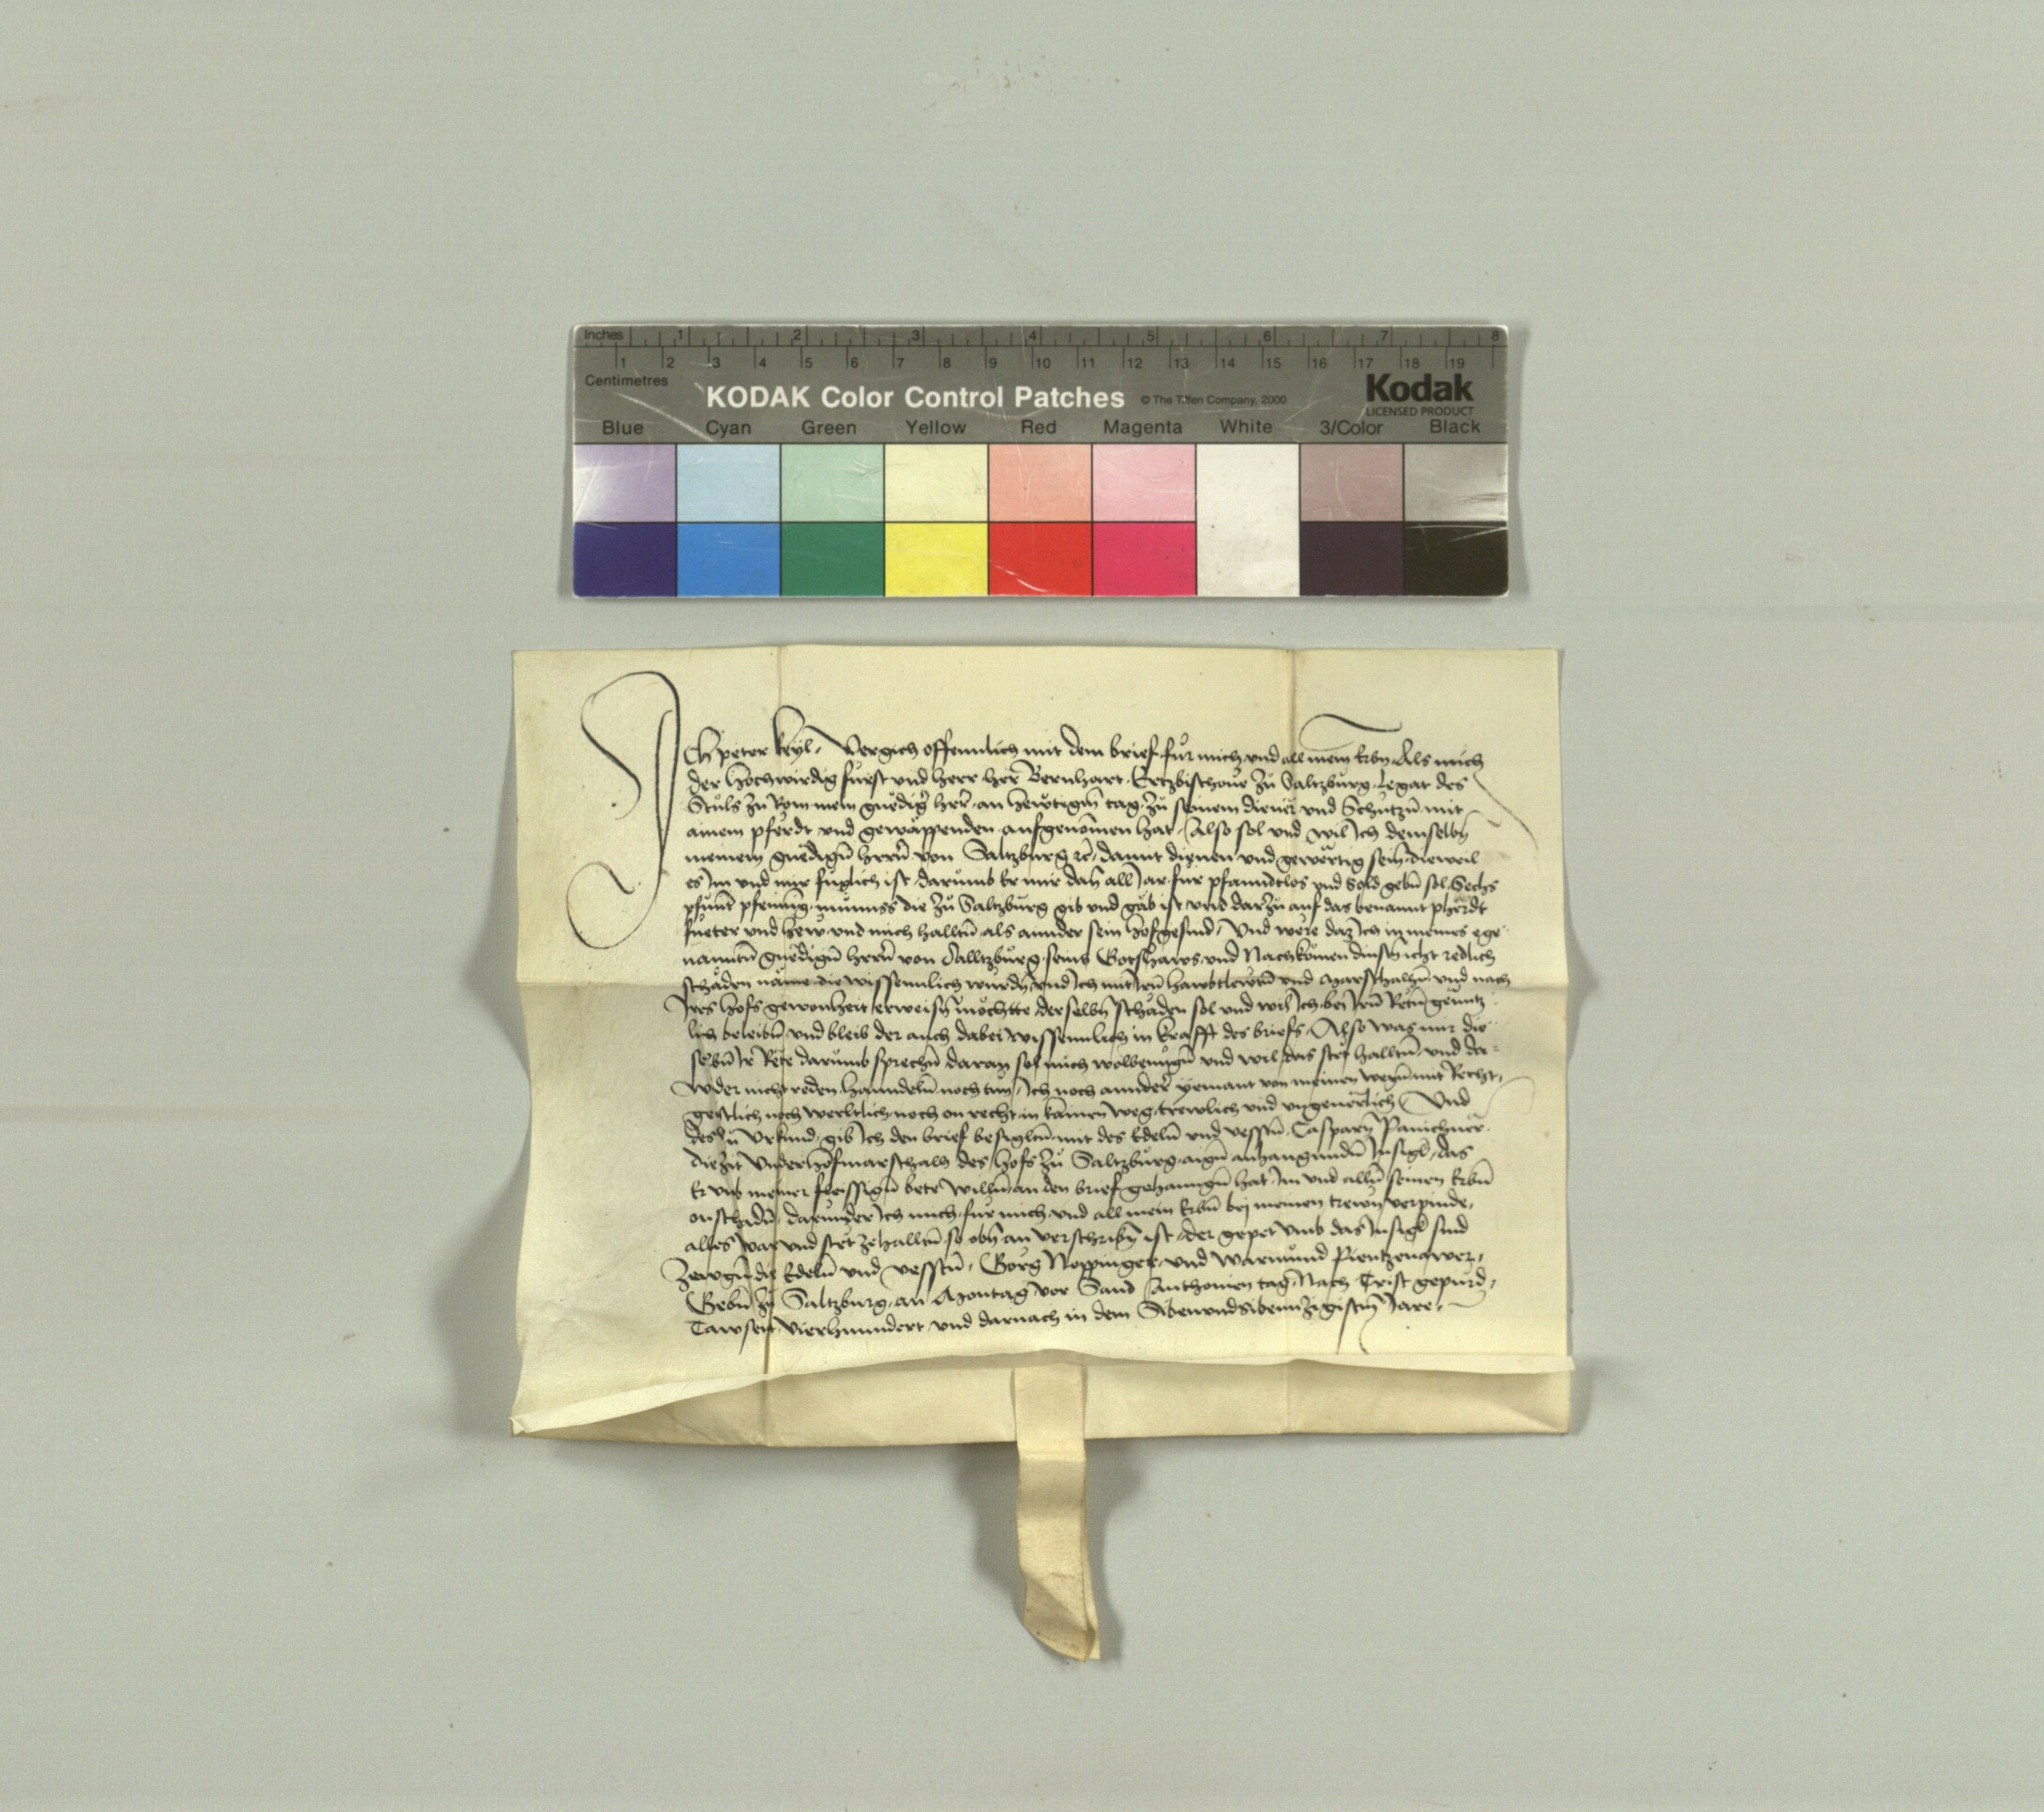 Inches 1 2 3 4 5 6 7 8
1 2 3 4 5 6 7 8 9 10 11 12 13 14 15 16 17 18 19
Centimetres
KODAK Color Control Patches © The Tiffen Company, 2000 Kodak
LICENSED PRODUCT
Blue Cyan Green Yellow Red Magenta White 3/Color Black
Ich peter keyl, Vergich offennlich mit dem brief fůr mich und all mein Erbn Als mich
der hochwirdig fürst und herr her Bernhart Ertzbischoue zů Saltzburg Legat des
Stůls zů Rom mein gnědiğ herr an hewtigm tag zů seinem diener und Schutzn̄ mit
ainem pferdt und gewappenden aufgenomen hat, Also sol und wil Ich demselbn̄
meinem gnědign̄ herrn̄ von Saltzburg ꝛc damit dienen und gewěrtig sein dieweil
es Im und mir fůglich ist darumb Er mir dan̄ all Jar fur pfanndtlos und Sold gebn̄ sol Sechs
pfunt pfennīg můnnss die zů Saltzburg gib und gäb ist und darzů auf das benannt pherdt
fueter und hěw und mich halltn̄ als annder sein hofgesind, Und were daz Ich in meines ege
nanntn̄ gnědign̄ herrn̄ von Salltzburg seins Gotshaws und Nachkomen dinst icht redlich
schäden näme die wissennlich wurdn̄ und Ich mit Irn̄ hawbtlewtn̄ und Marschalhn̄ und nach
Irs hofs gewonheit erweisn̄ möchtte derselbn̄ schäden sol und wil Ich bei Irn̄ Retn̄ genntz
lich beleibn̄ und bleib der auch dabei wissennlich in krafft des briefs, Also was mir die
selbn̄ Ir Rěte darumb sprechn̄ daran sol mich wolbenůgn̄ und wil das stět halltn̄ und da
wider nicht reden hanndeln̄ noch tun, Ich noch annder yemant von meinen wegn̄ mit Recht,
geistlich noch werltlich noch on recht in kainen weg trewlich und ungeuerlich Und
des zů Urkund gib Ich den brief besigltn̄ mit des Edeln̄ und vesstn̄ Casparn Panichner
die zit Underhofmarschalh des hofs zů Saltzburg aign̄ anhangundn̄ Insigl, das
Er umb meiner fleissign̄ bete willn̄ an den brief gehanngn̄ hat Im und alln̄ seinen Erbn̄
on schadn̄, darunder Ich mich fůr mich und all mein Erbn̄ bei meinen trewn̄ verpinde,
alles war und stět ze halltn̄ so obn̄ an verschribn̄ ist, der gepet umb das Insigl sind
Zewgn̄ die Edeln̄ und vesstn̄, Görg Noppinger und Warmund Pientzenawer,
Gebn̄ zů Saltzburg an Montag vor Sand Anthonien tag Nach Crist gepurd,
Tawsent Vierhundert und darnach in dem Sibenundsibenntzigistn̄ Jare,